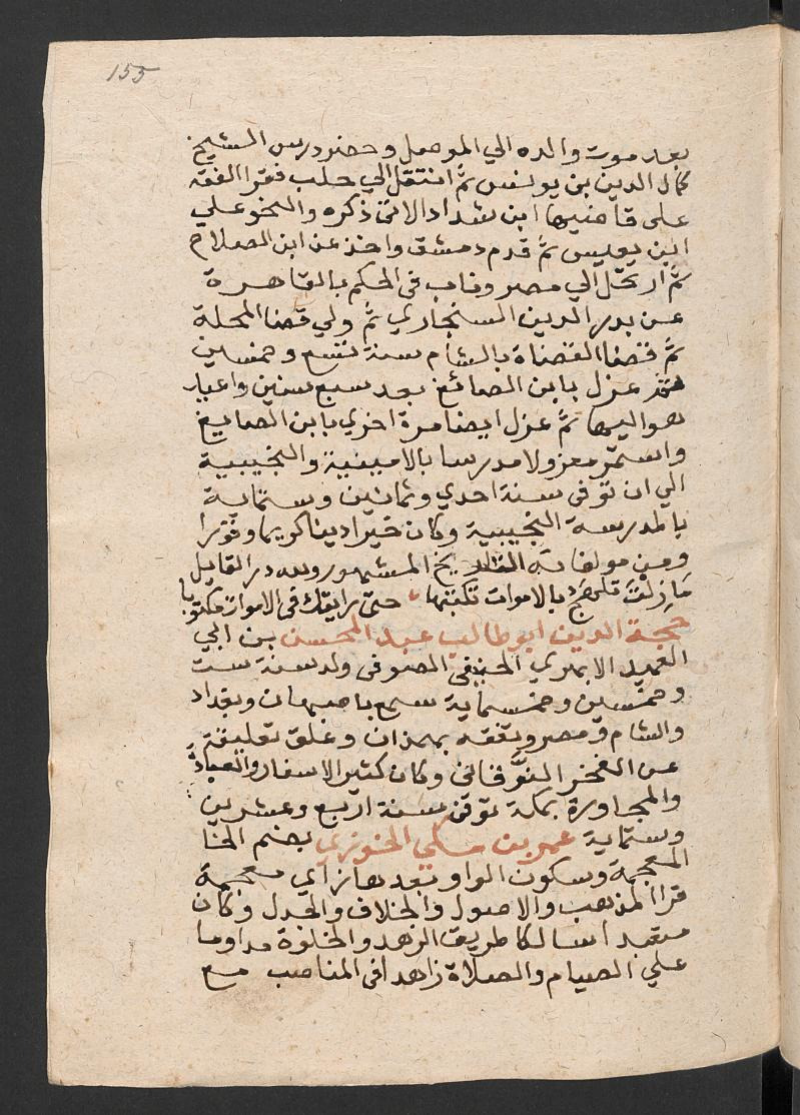 155
بعد موت والده الي الموصل وحضر درس الشيخ
كمال الدين بن يونس ثم انتقل الي حلب فقرا الفقه
على قاضيها ابن شداد الاتى ذكره والنحو علي
ابن يعيس ثم قدم دمشق واخذ عن ابن الصلاح
ثم ارتحل الي مصر وناب في الحكم بالقاهرة
عن بدر الدين السنجاري ثم ولي قضا المحلة
ثم قضا القضاة بالشام سنة تسع وخمسين
ثم عزل بابن الصائغ بعد سبع سنين واعيد
هو اليها ثم عزل ايضا مرة اخري بابن الصايغ
واستمر معزولا مدرسا بالامينية والنجيبية
الي ان توفى سنة احدي وثمانين وستماية
بالمدرسة النجيبية وكان خيرا دينا كريما وقورا
ومن مولفاته التاريخ المشهور ولله در القايل
مَا زِلْتَ تلهج بالاموات تكتبها حتى رايتك في الاموات مكتوبا
حجة الدين ابو طالب عبد المحسن بن ابي
العميد الابهري الحنيفى الصوفى ولد سنة ست
وخمسين وخمسماية سمع باصبهان وبغداد
والشام ومصر وتفقه بهمذان وعلق تعليقة
عن الفخر النوقانى وكان كثير الاسفار والعبادة
والمجاورة بمكة توفى سنة اربع وعشرين
وستماية عمر بن مكي الخوزي بضم الخا
المعجمة وسكون الواو بعدها زاي معجمة
قرا المذهب والاصول والخلاف والجدل وكان
متعبدا سالكا طريق الزهد والخلوة مداوما
علي الصيام والصلاة زاهدا في المناصب مع